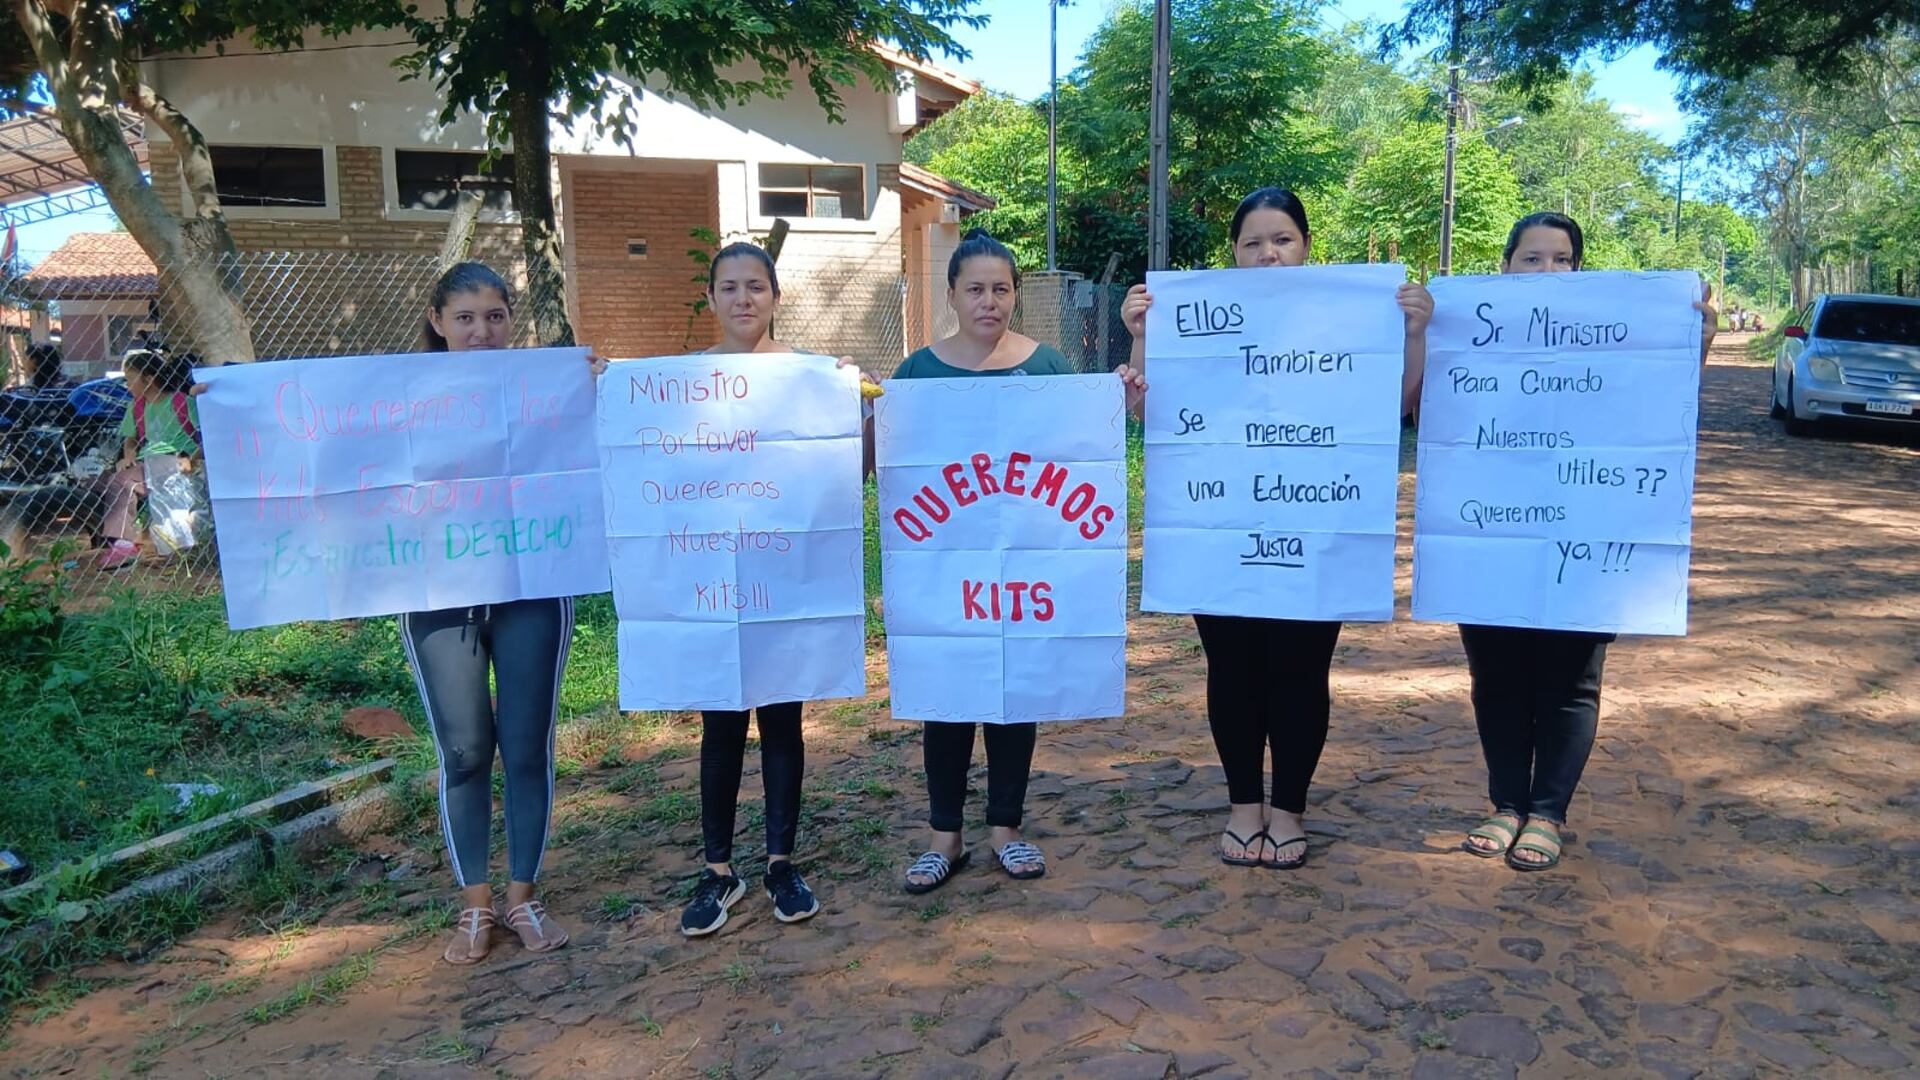 ¡¡Queremos los
Kits Escolares!!
¡Es nuestro DERECHO!
Ministro
Por favor
Queremos
Nuestros
Kits!!!
QUEREMOS
KITS
Ellos
Tambien
Se merecen
una Educación
Justa
Sr. Ministro
Para Cuando
Nuestros
Utiles??
Queremos
ya!!!